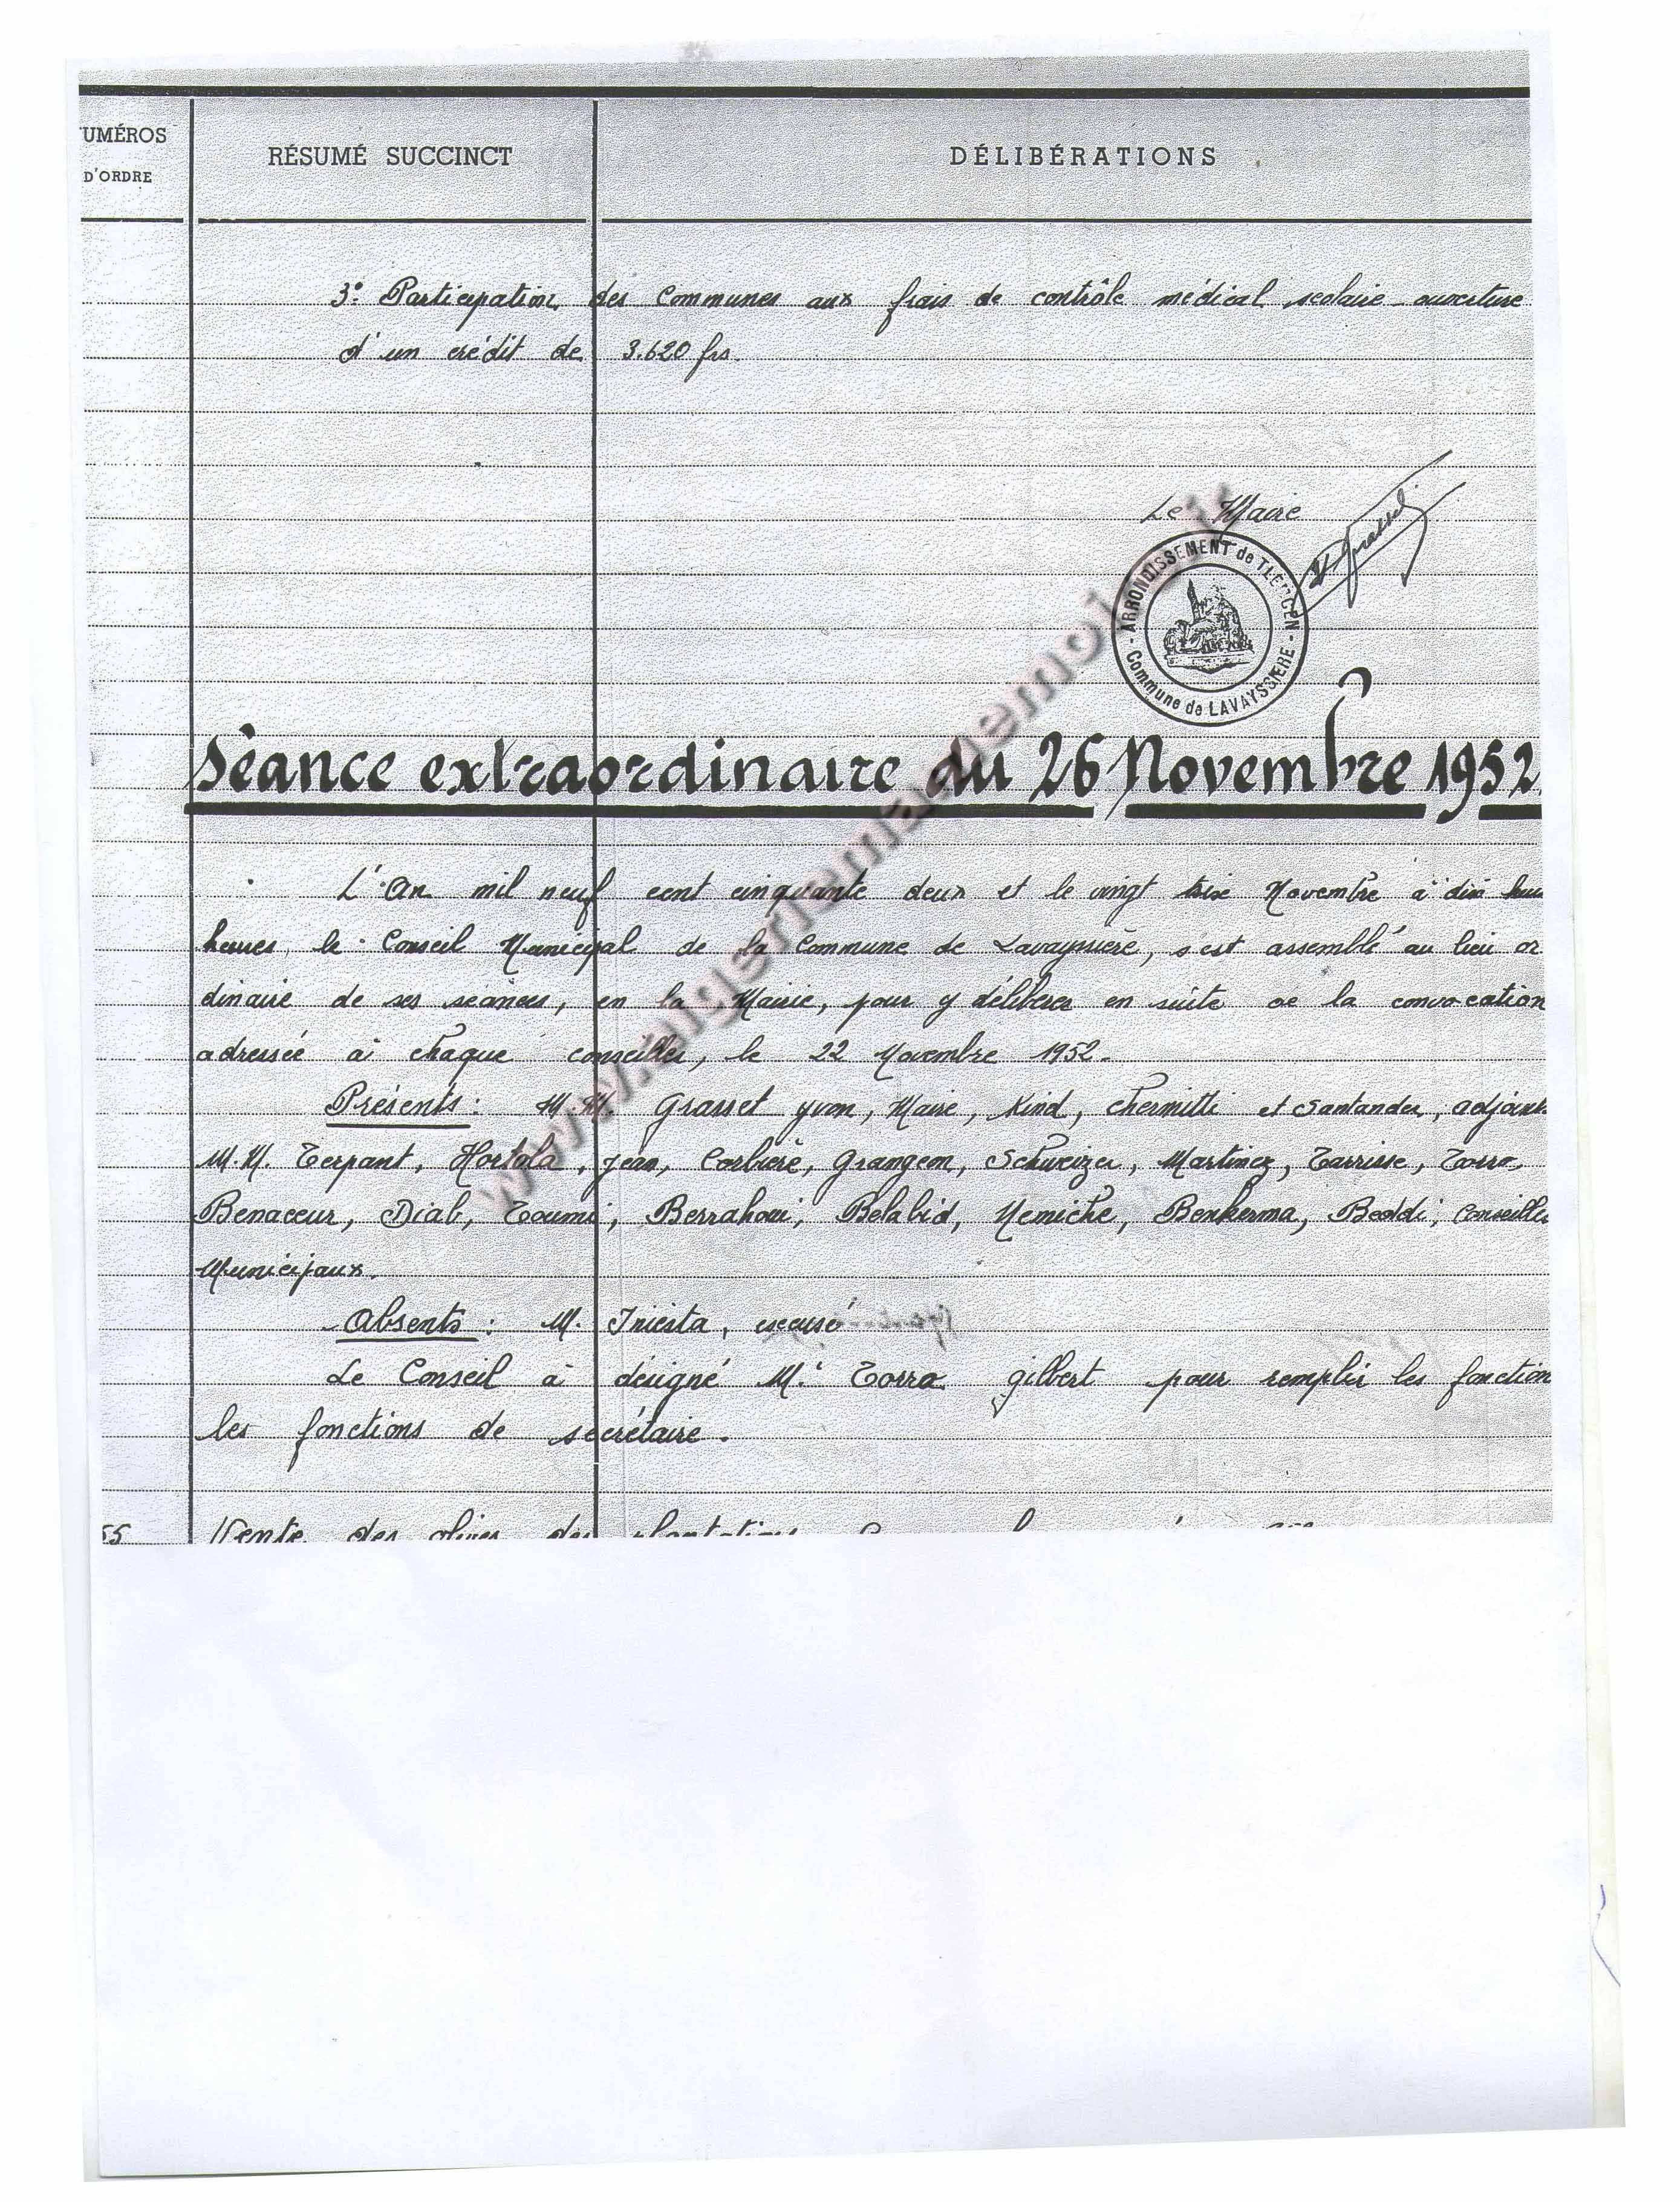 UMÉROS
D'ORDRE
RÉSUMÉ SUCCINCT
DÉLIBÉRATIONS
3° Participation des Communes aux frais de contrôle médical scolaire ouverture
d'un crédit de 3.620 frs.
Le Maire
Y Grasset
ARRONDISSEMENT de TLEMCEN
Commune de LAVAYSSIERE
Séance extraordinaire du 26 Novembre 1952.
L'An mil neuf cent cinquante deux et le vingt six Novembre à dix huit
heures, le Conseil Municipal de la Commune de Lavayssière, s'est assemblé au lieu or
dinaire de ses séances, en la Mairie, pour y délibérer en suite de la convocation
adressée à chaque conseiller, le 22 Novembre 1952.
Présents: M.M. Grasset Yvon, Maire, Kind, Chermitti et Santander, adjoints
M.M. Terpant, Hortola, Jean, Corbière, Grangeon, Schweizer, Martinez, Tarrisse, Torro,
Benaceur, Diab, Toumi, Berrahoui, Belabid, Nemiche, Benkerma, Beddi, Conseillers
Municipaux.
Absents: M. Iniesta, excusé
Le Conseil à désigné M. Torro Gilbert pour remplir les fonction
les fonctions de secrétaire.
55 Vente des olives des plantations